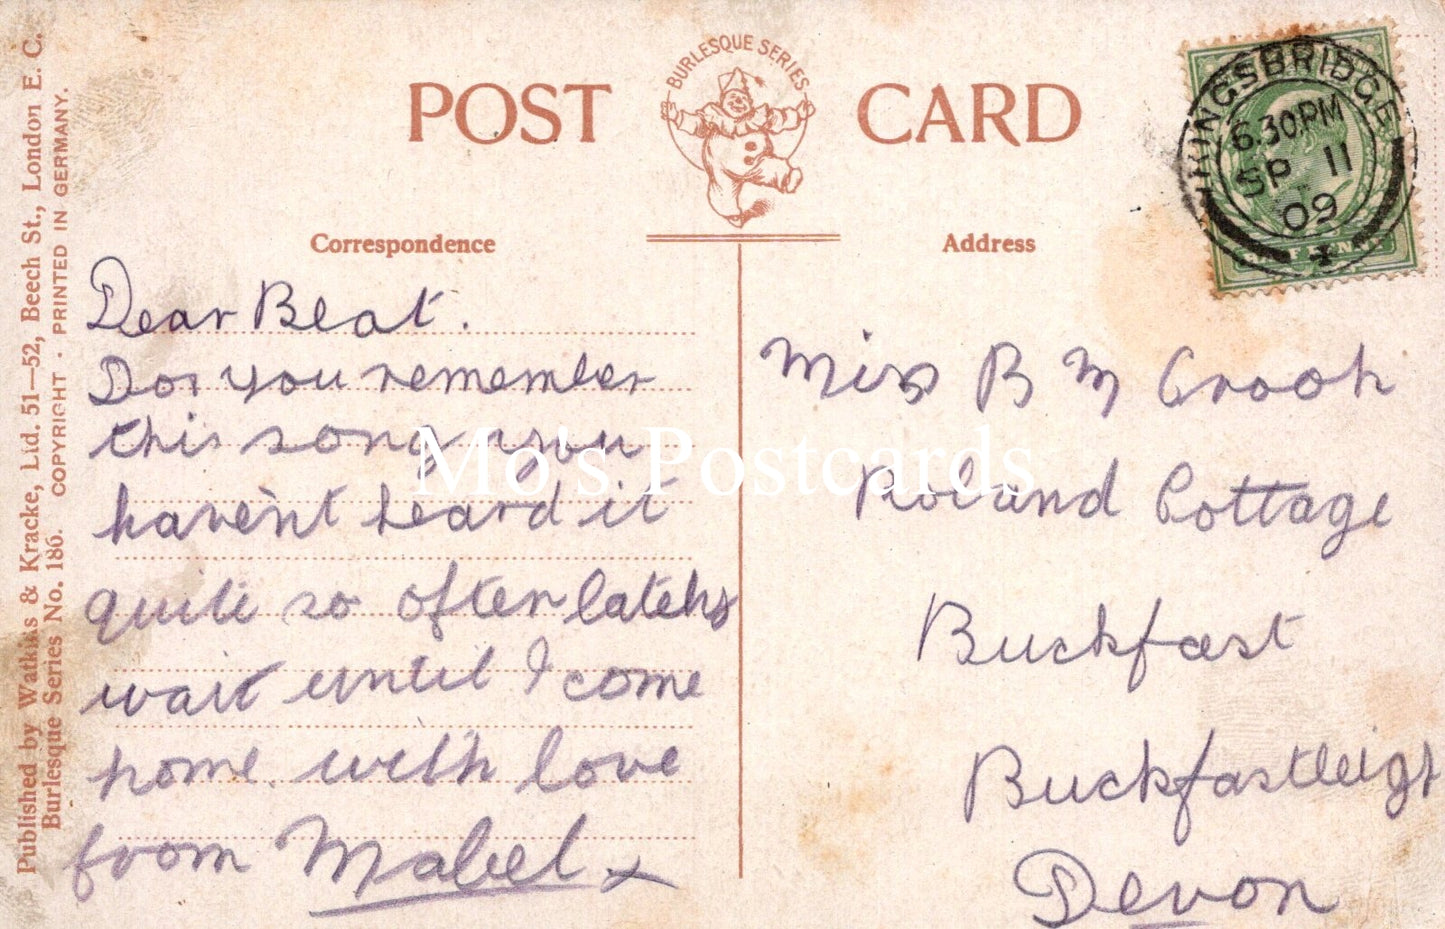 Published by Watkins & Kracke, Ltd. 51—52, Beech St., London E. C.
Burlesque Series No. 186. COPYRIGHT · PRINTED IN GERMANY.
POST CARD
BURLESQUE SERIES
Correspondence
Address
KINGSBRIDGE
6.30PM
SP 11
09
Dear Beat.
Do you remember
this song you
haven't heard it
quite so often lately
wait until I come
home with love
from Mabel x
Miss B M Crook
Roland Cottage
Buckfast
Buckfastleigh
Devon
Mo's Postcards